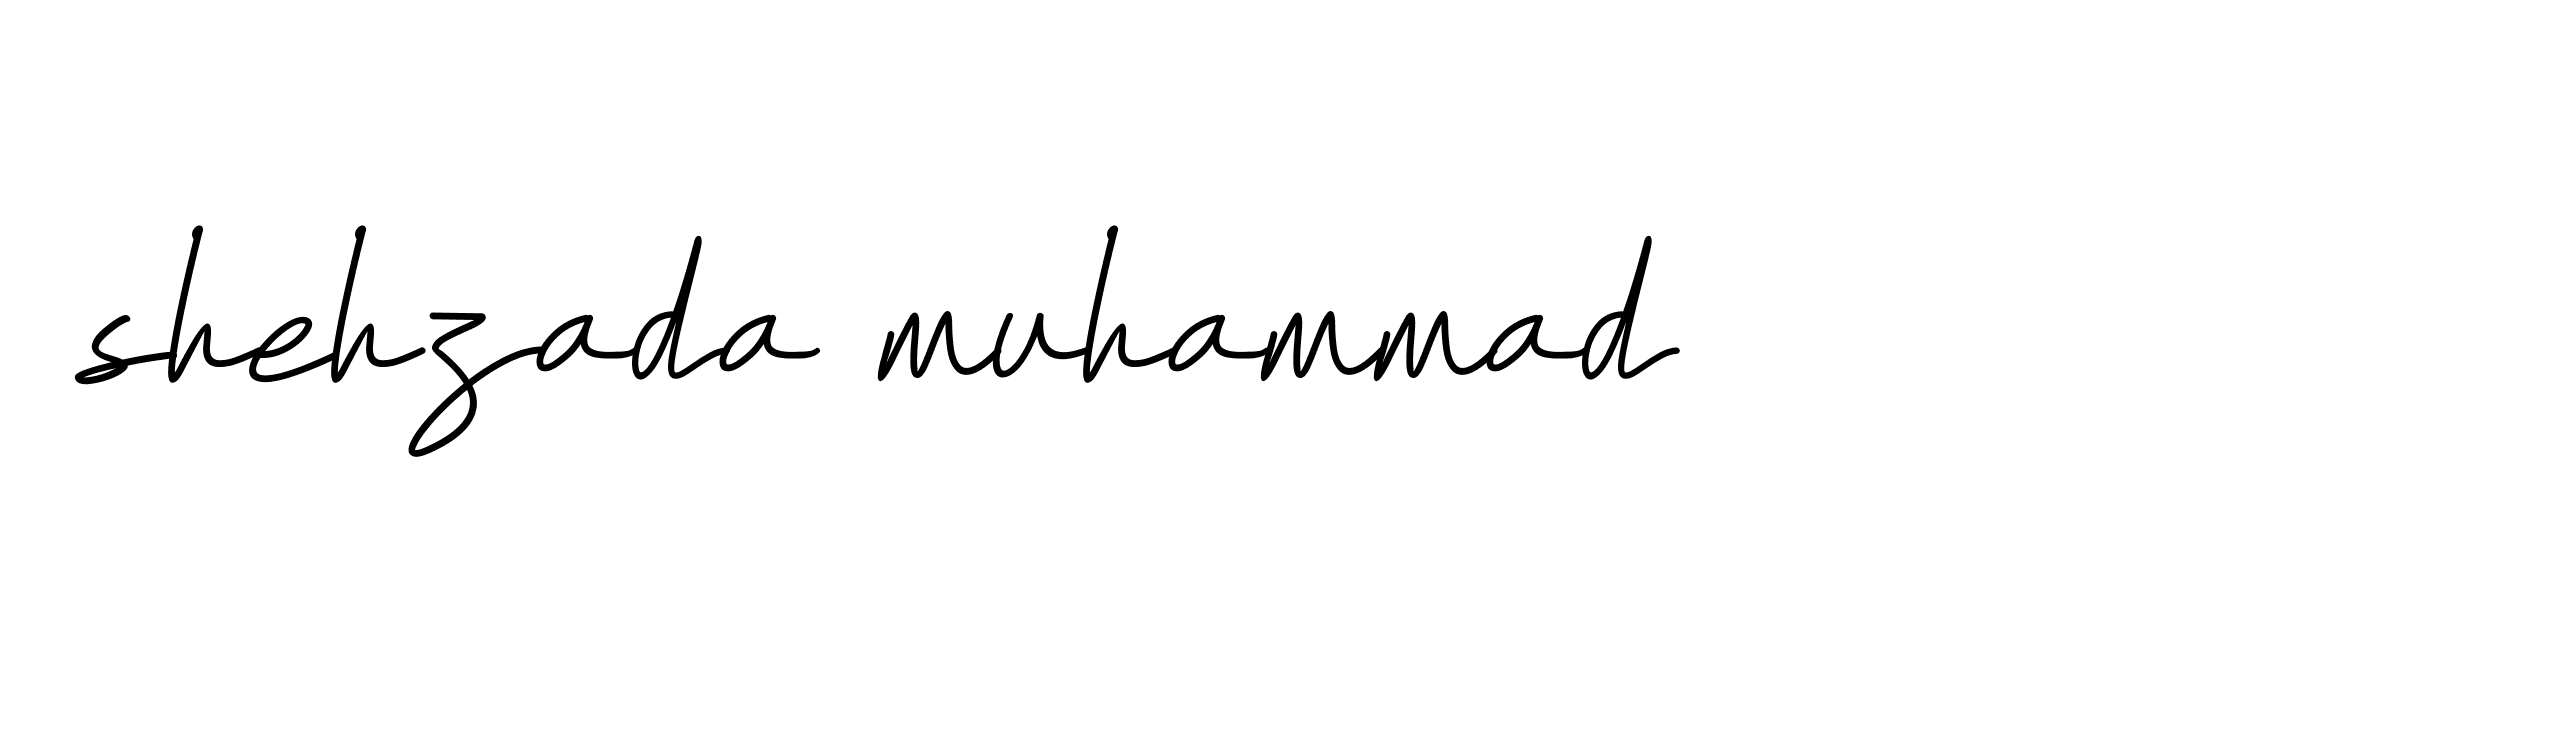 shehzada muhammad